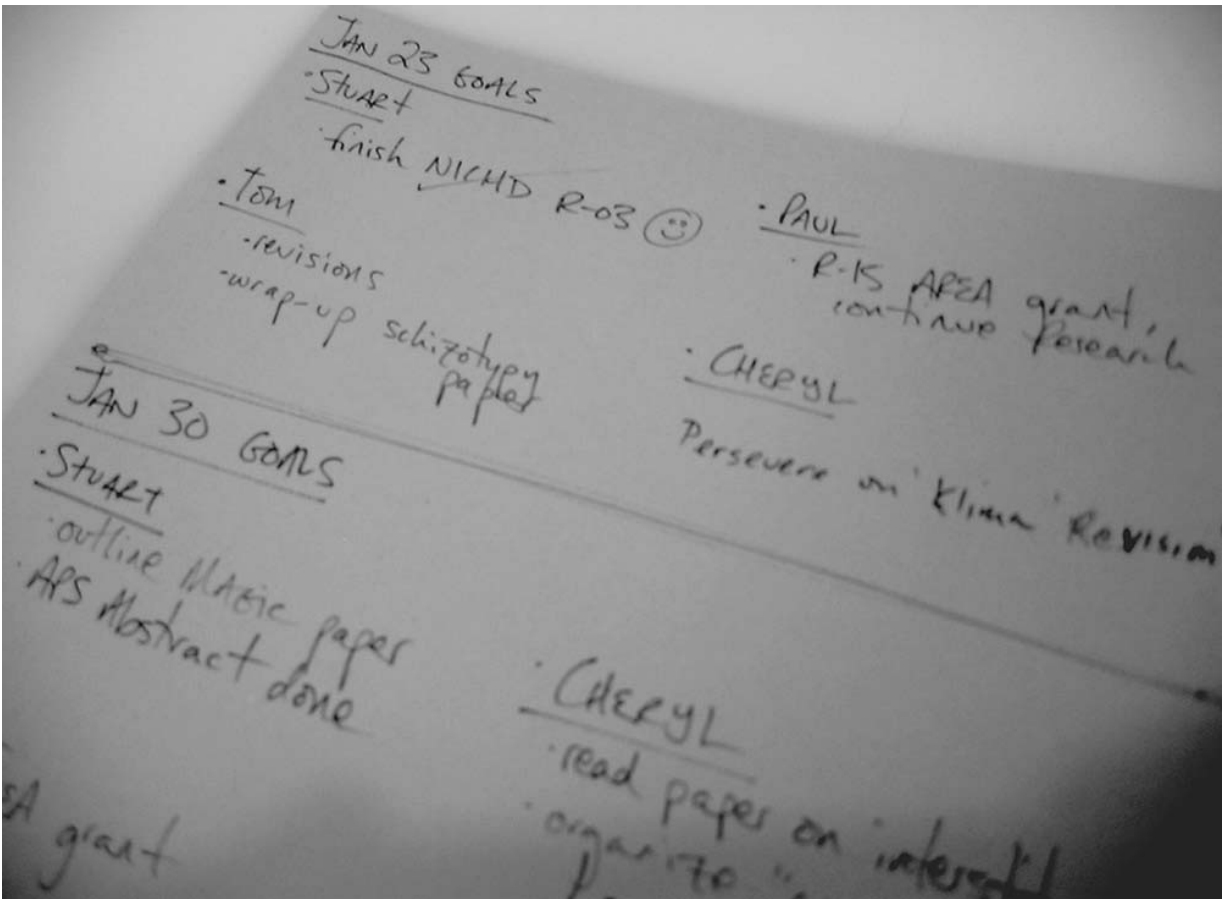 JAN 23 GOALS
· Stuart
· finish NICHD R-03 ☺
· Tom
· revisions
· wrap-up schizotypy
paper
· PAUL
· R-15 AREA grant,
continue Research
· CHERYL
Persevere on 'Klima' Revision
JAN 30 GOALS
· STUART
· outline MAGIC paper
· APS Abstract done
grant
· CHERYL
· read paper on interest
· organize "